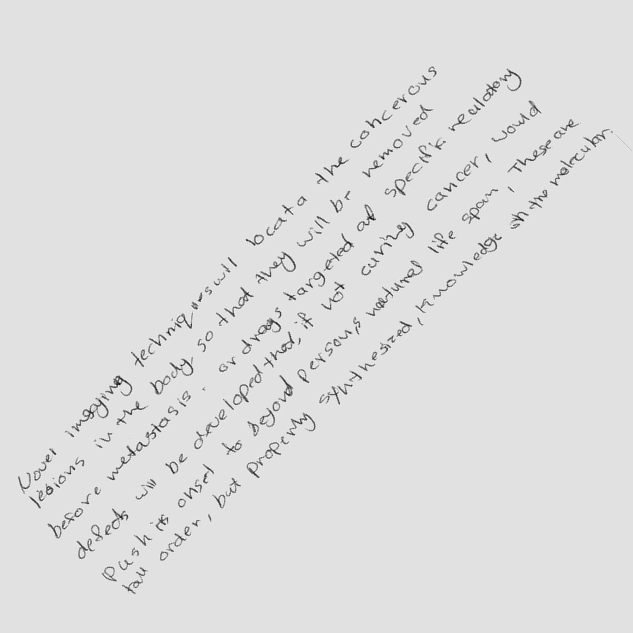 Novel imaging techniques will locata the cancerous
lesions in the body so that they will be removed
before metastasis. or drugs targeted at specific reulatory
defects will be developed that, if not curing cancer, would
push its onset to beyond persons natural life span, These are
tall order, but properly synthesized, knowledge in the molecular.